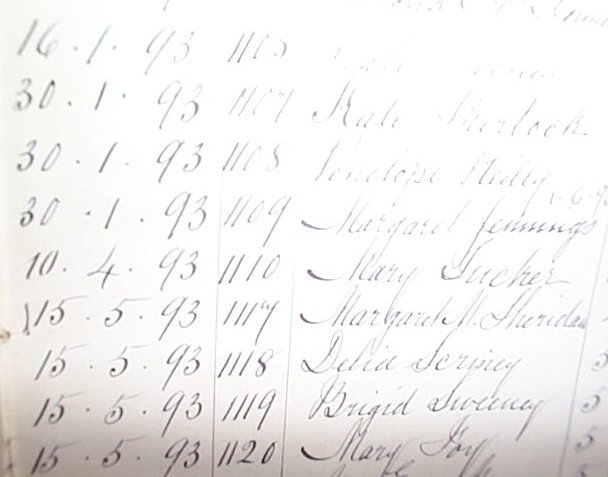 16.1.93
30.1.93 1107 Kate Sherlock
30.1.93 1108 Penelope Reilly
30.1.93 1109 Margaret Jennings
10.4.93 1110 Mary Tucker
15.5.93 1117 Margaret M. Sheridan
15.5.93 1118 Delia
15.5.93 1119 Brigid Sweeney
15.5.93 1120 Mary Foy